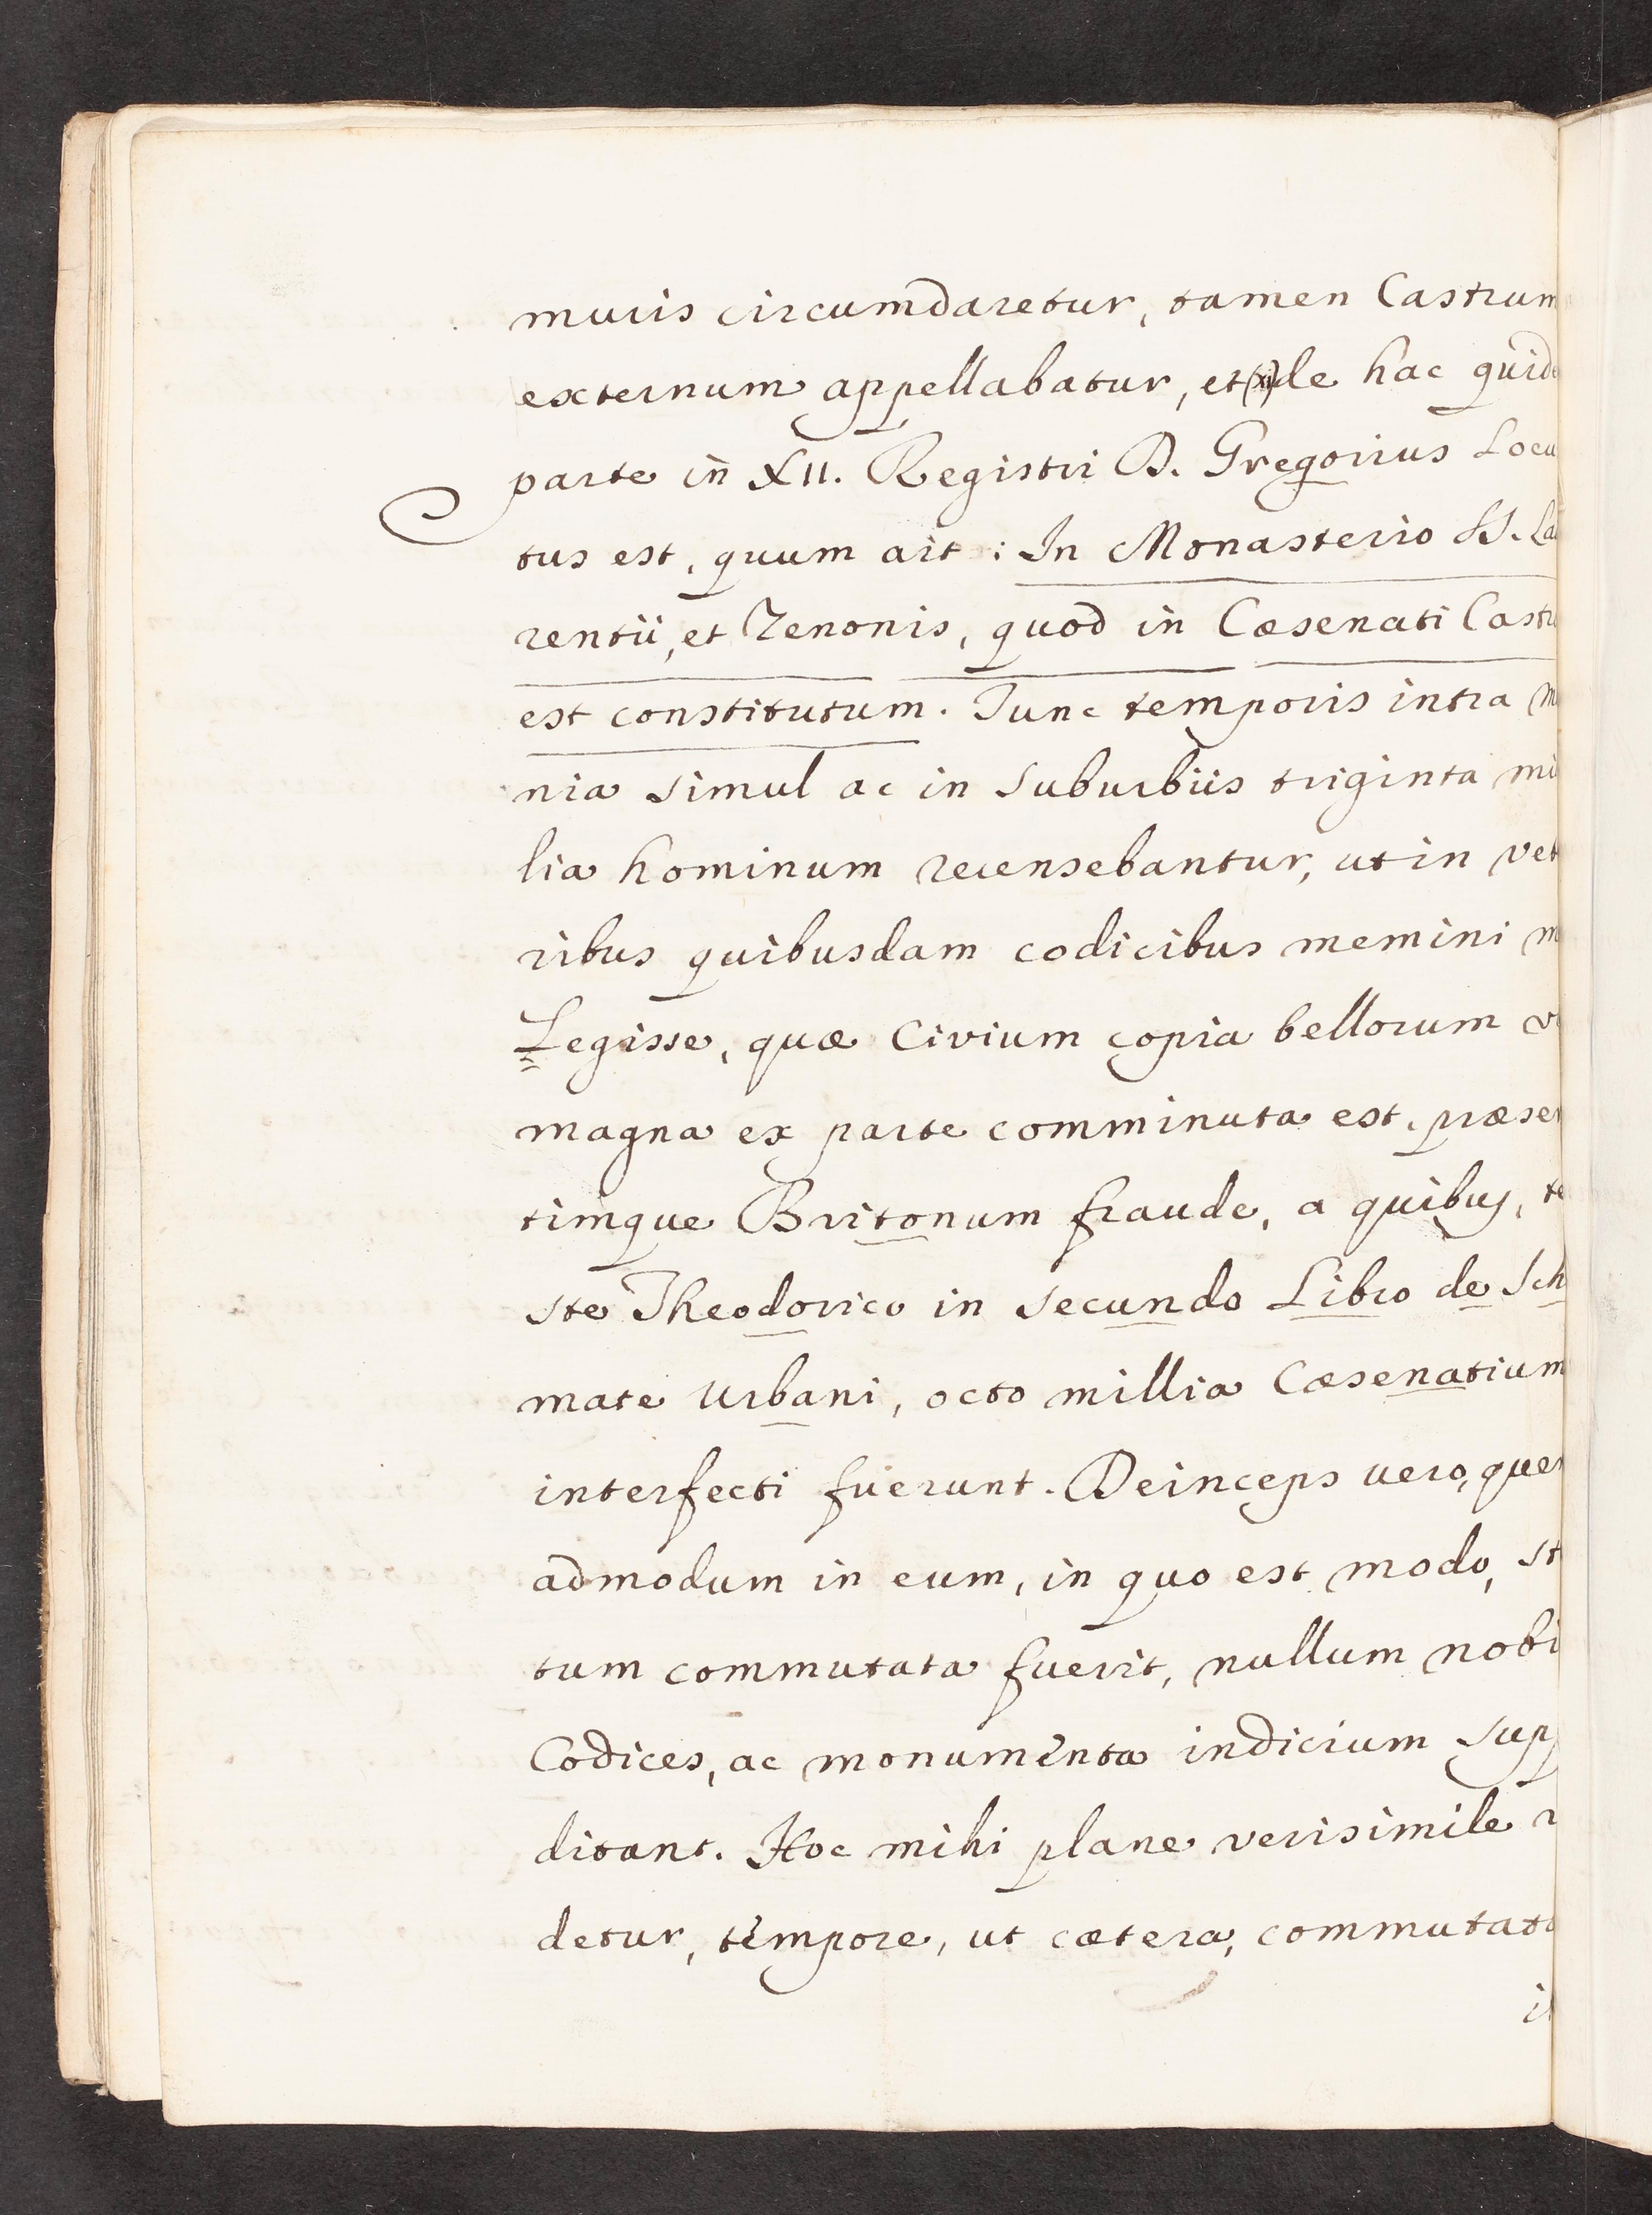 muris circumdaretur, tamen Castrum
externum appellabatur, et (xi) de hac quide
parte in XII. Registri B. Gregorius Locu
tus est, quum ait: In Monasterio SS. Lau
rentii, et Zenonis, quod in Cæsenati Castr
est constitutum. Tunc temporis intra m
nia simul ac in suburbiis triginta mil
lia hominum recensebantur, ut in vet
ribus quibusdam codicibus memini m
Legisse, quæ Civium copia bellorum v
magna ex parte comminuta est, præser
timque Britonum fraude, a quibus, te
ste Theodorico in secundo Libro de Sch
mate Urbani, octo millia Cæsenatium
interfecti fuerunt. Deinceps vero, quem
admodum in eum, in quo est modo, st
tum commutata fuerit, nullum nobi
Codices, ac monumenta indicium supp
ditant. Hoc mihi plane verisimile
detur, tempore, ut cætera, commutato